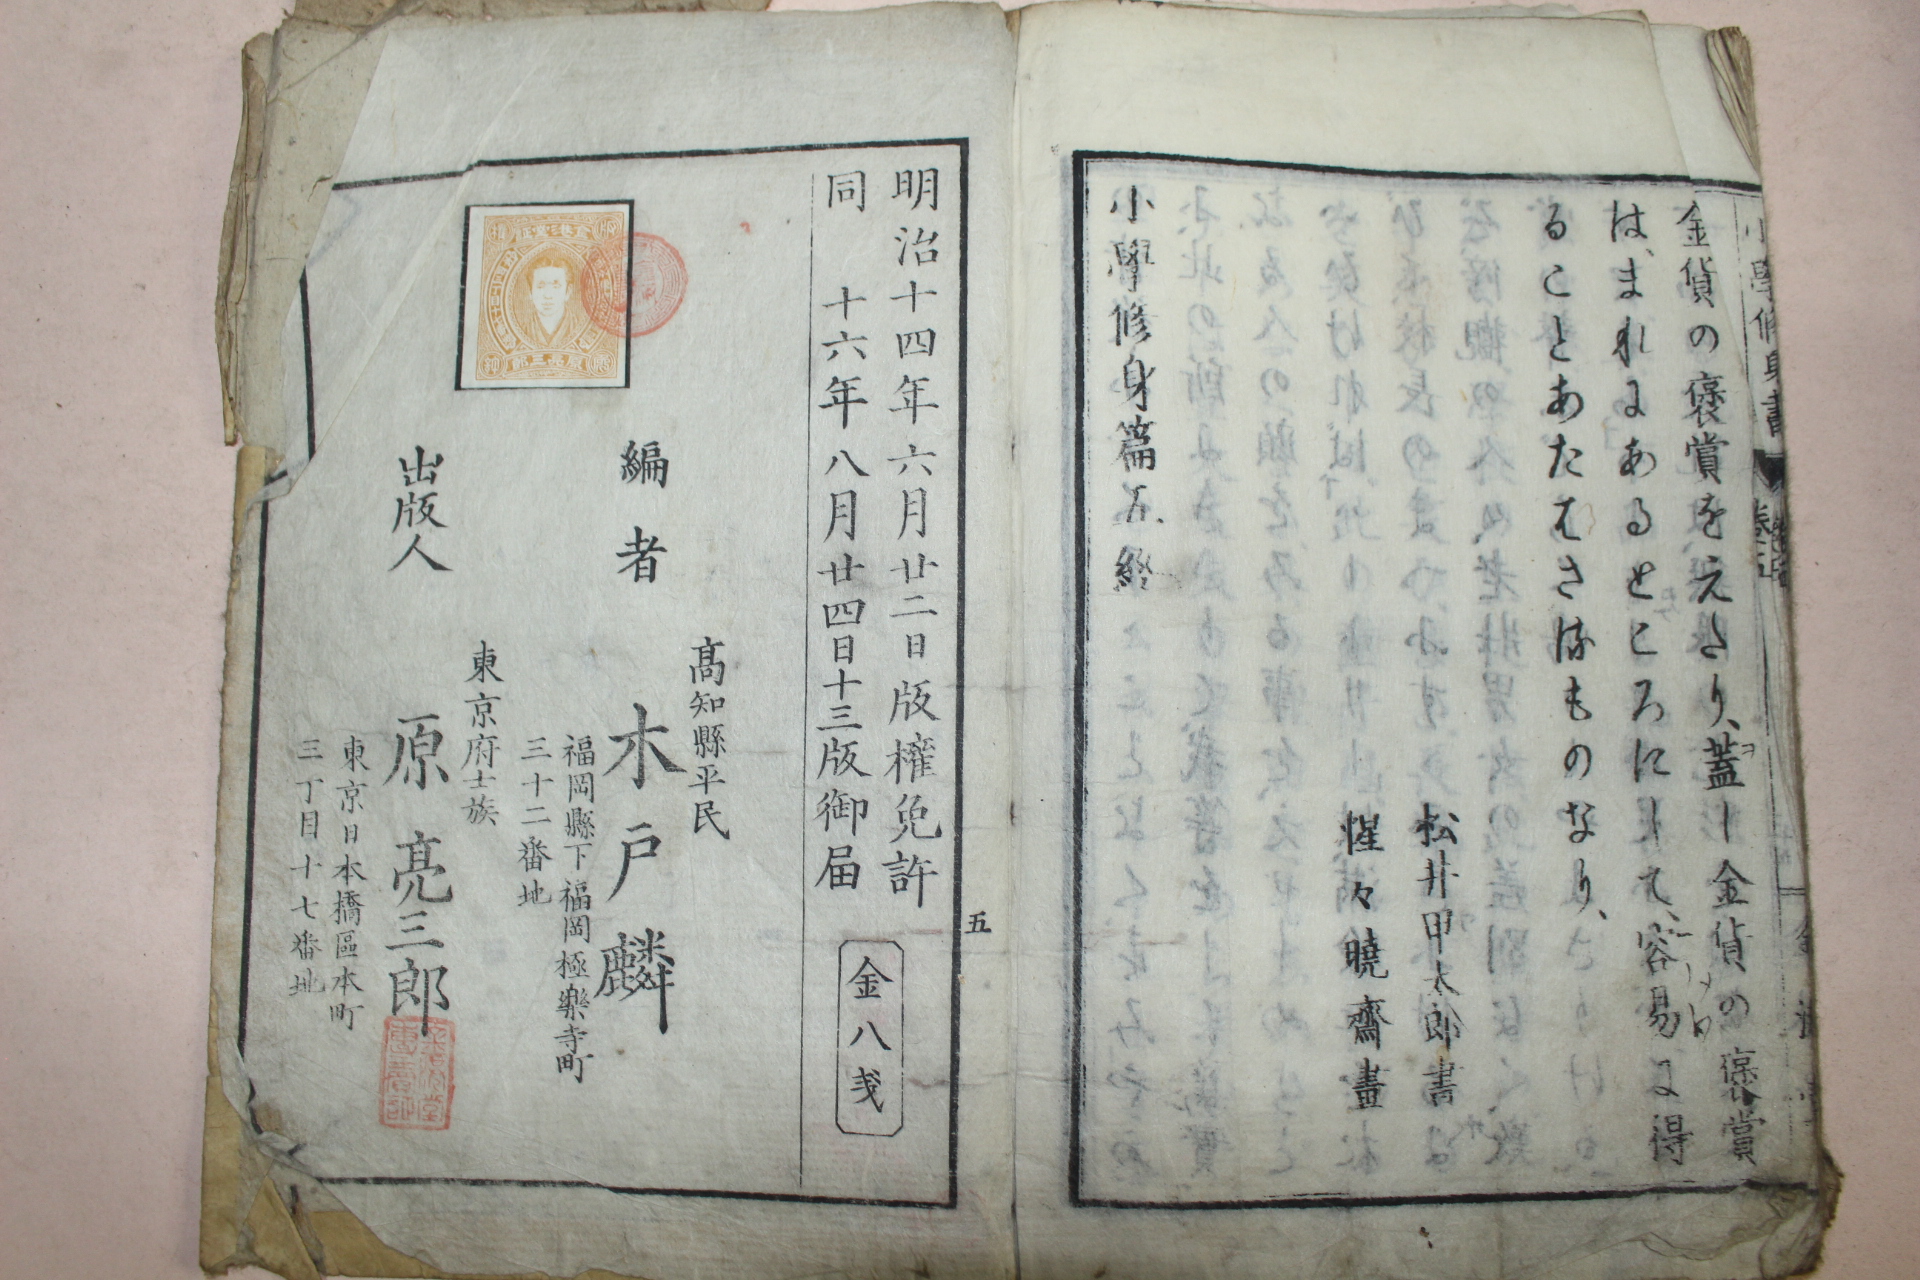 金貨の褒賞をえたり、蓋し金貨の褒賞
は、まれにあるところにして、容易に得
ることあたはさるものなり、
松井甲太郎書
惺々暁齋畫
小學修身篇五終
五
明治十四年六月廿二日版權免許
同 十六年八月廿四日十三版御届
金八戔
編者
髙知縣平民
木戸麟
福岡縣下福岡極樂寺町
三十二番地
出版人
東京府士族
原亮三郎
東京日本橋區本町
三丁目十七番地